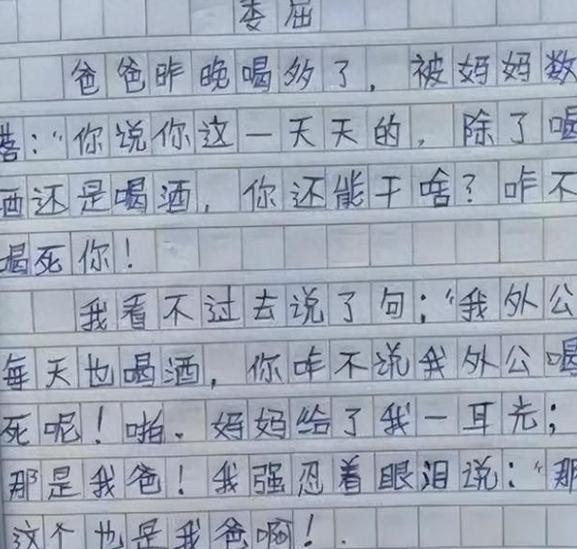 委屈
爸爸昨晚喝多了，被妈妈数
落：“你说你这一天天的，除了喝
酒还是喝酒，你还能干啥？咋不
喝死你！
我看不过去说了句：“我外公
每天也喝酒，你咋不说我外公喝
死呢！啪．妈妈给了我一耳光；
那是我爸！我强忍着眼泪说：“那
这个也是我爸啊！．